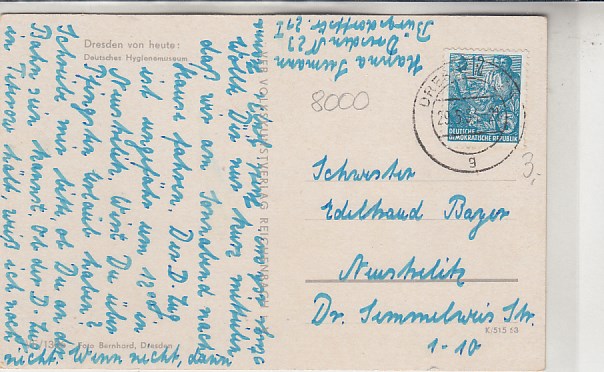 Dresden von heute:
Deutsches Hygienemuseum
Hanna
Dresden N 23
Bürgerstr.
8000
DRES
29.5.
g
DEUTSCHE
DEMOKRATISCHE REPUBLIK
3,-
Schwester
Edeltraud Bayer
Neustrelitz
Dr. Semmelweis Str.
1-10
K/515 53
Foto Bernhard, Dresden
VOLKSKUNSTVERLAG REICHENBACH
Wollte Dir nur kurz mitteilen
daß wir am Sonnabend nach
Hause fahren. Der D. Zug
ist ungefähr um 1200 in
Neustrelitz. Wirst Du über
Pfingsten Urlaub haben?
Schreibe mir bitte, ob Du an der
Bahn sein kannst. Ob der D. Zug
in hält, weiß ich noch
nicht. Wenn nicht, dann